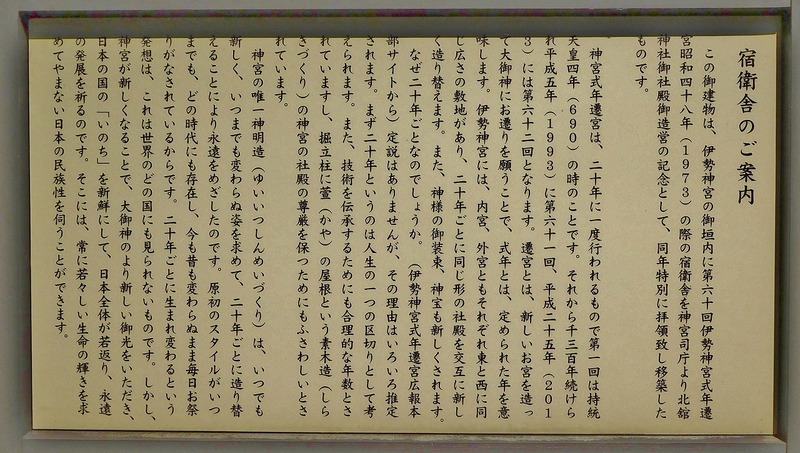 宿衛舎のご案内
この御建物は、伊勢神宮の御垣内に第六十回伊勢神宮式年遷
宮昭和四十八年（1973）の際の宿衛舎を神宮司庁より北舘
神社御社殿御造営の記念として、同年特別に拝領致し移築した
ものです。
神宮式年遷宮は、二十年に一度行われるもので第一回は持統
天皇四年（690）の時のことです。それから千三百年続けら
れ平成五年（1993）に第六十一回、平成二十五年（201
3）には第六十二回となります。遷宮とは、新しいお宮を造っ
て大御神にお遷りを願うことで、式年とは、定められた年を意
味します。伊勢神宮には、内宮、外宮ともそれぞれ東と西に同
じ広さの敷地があり、二十年ごとに同じ形の社殿を交互に新し
く造り替えます。また、神様の御装束、神宝も新しくされます。
なぜ二十年ごとなのでしょうか。（伊勢神宮式年遷宮広報本
部サイトから）定説はありませんが、その理由はいろいろ推定
されます。まず二十年というのは人生の一つの区切りとして考
えられます。また、技術を伝承するためにも合理的な年数とさ
れていますし、掘立柱に萱（かや）の屋根という素木造（しら
きづくり）の神宮の社殿の尊厳を保つためにもふさわしいとさ
れています。
神宮の唯一神明造（ゆいいつしんめいづくり）は、いつでも
新しく、いつまでも変わらぬ姿を求めて、二十年ごとに造り替
えることにより永遠をめざしたのです。原初のスタイルがいつ
までも、どの時代にも存在し、今も昔も変わらぬまま毎日お祭
りがなされているからです。二十年ごとに生まれ変わるという
発想は、これは世界のどの国にも見られないものです。しかし、
神宮が新しくなることで、大御神のより新しい御光をいただき、
日本の国の「いのち」を新鮮にして、日本全体が若返り、永遠
の発展を祈るのです。そこには、常に若々しい生命の輝きを求
めてやまない日本の民族性を伺うことができます。